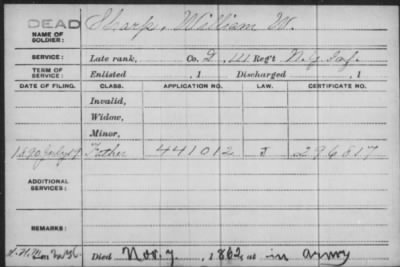 DEAD
NAME OF SOLDIER: Sharp, William W.
SERVICE: Late rank, Co. D, 141 Reg't N.Y. Inf.
TERM OF SERVICE: Enlisted , 1 Discharged , 1
DATE OF FILING. CLASS. APPLICATION NO. LAW. CERTIFICATE NO.
Invalid,
Widow,
Minor,
1890 July 19. Father 441012 J 296817
ADDITIONAL SERVICES:
REMARKS:
Died Nov. 7, 1862, at in army